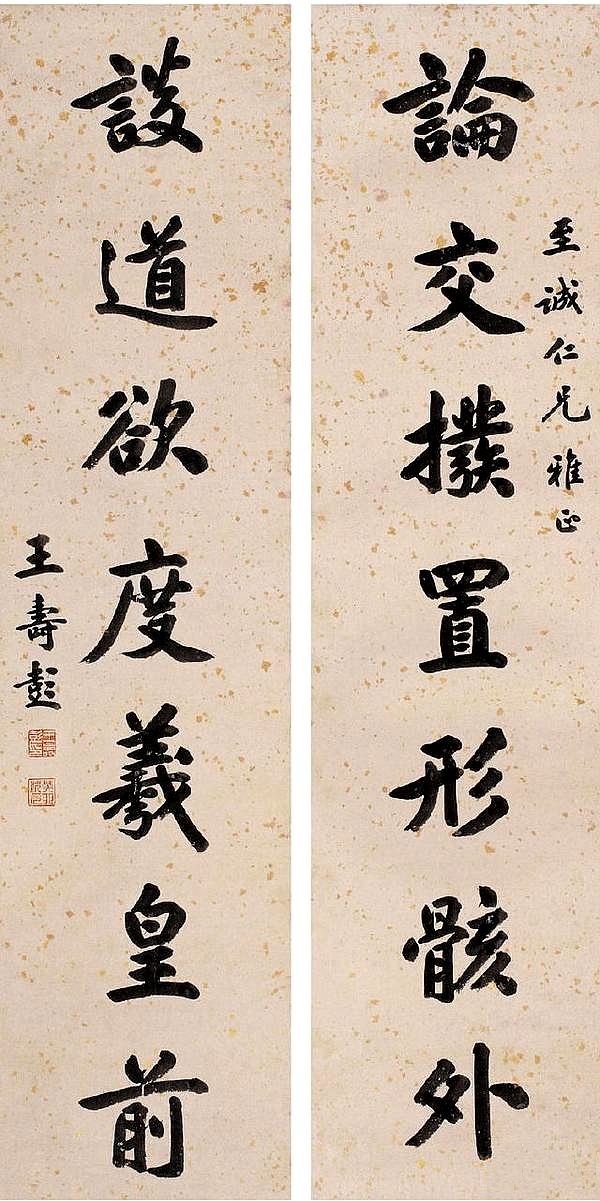 論交撥置形骸外
至誠仁兄雅正
談道欲度羲皇前
王壽彭